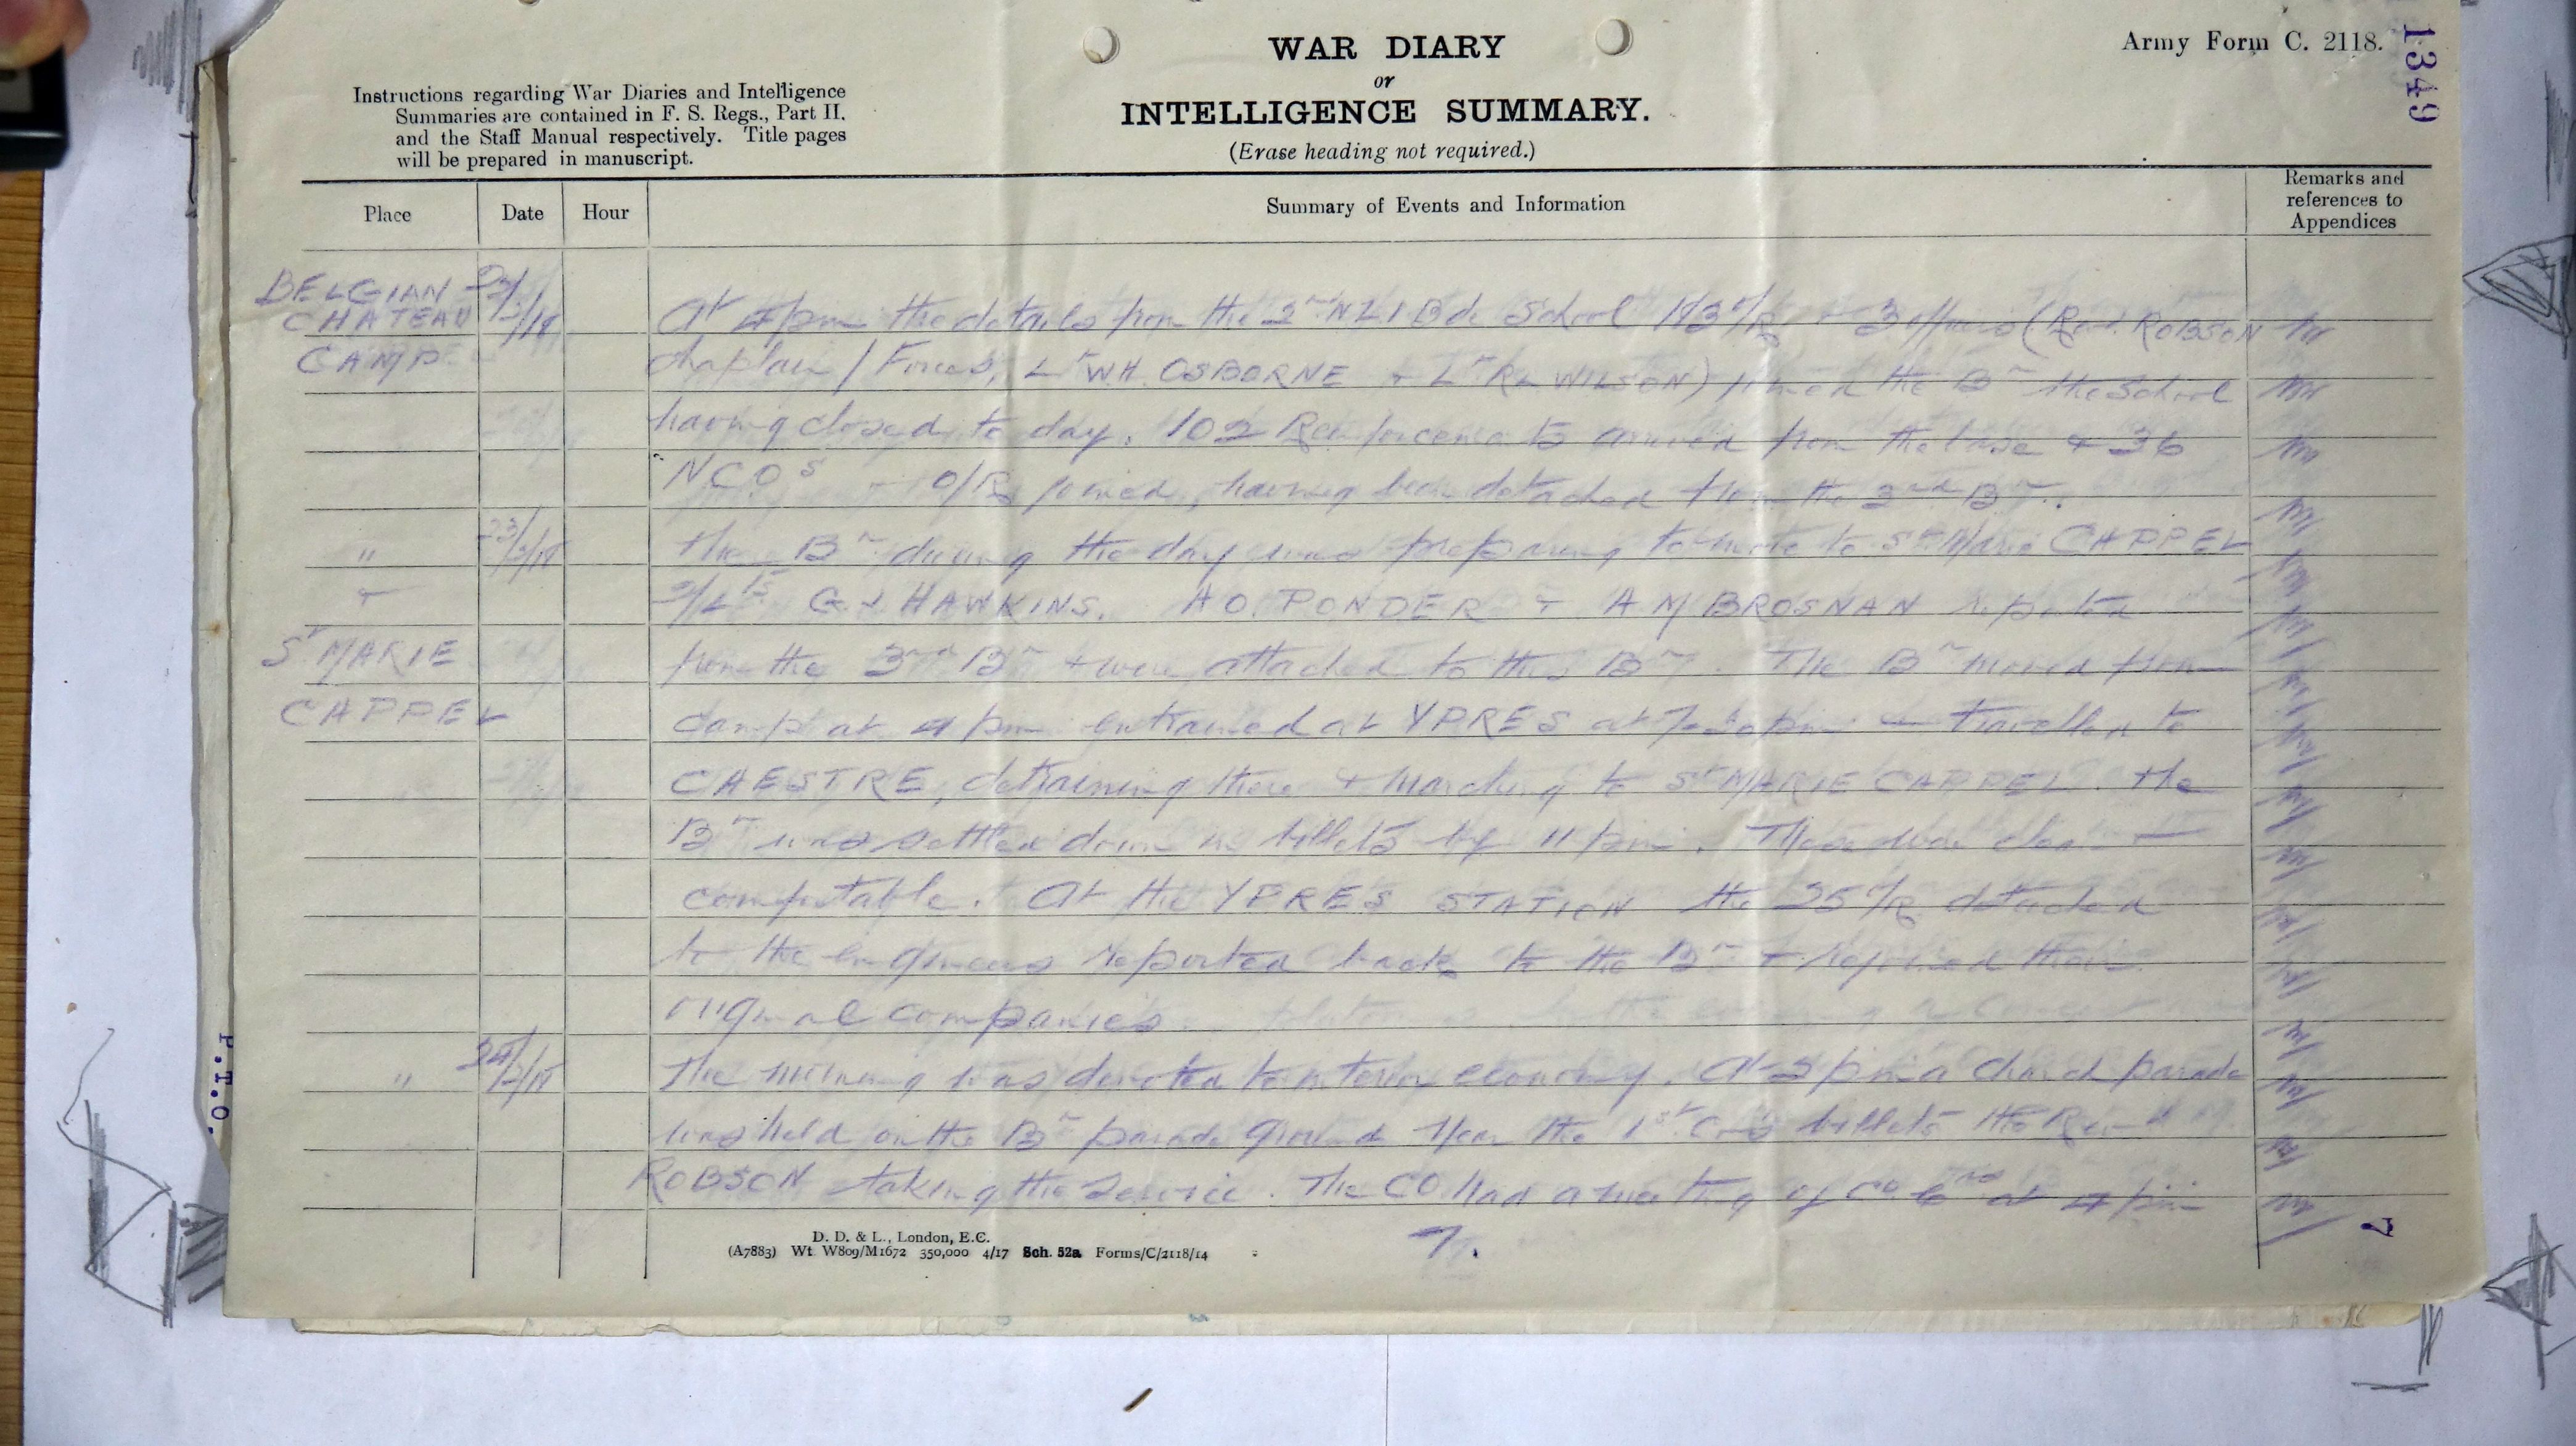 WAR DIARY
or
INTELLIGENCE SUMMARY.
(Erase heading not required.)
Army Form C. 2118.
1349
Instructions regarding War Diaries and Intelligence
Summaries are contained in F. S. Regs., Part II.
and the Staff Manual respectively. Title pages
will be prepared in manuscript.
Place Date Hour Summary of Events and Information Remarks and references to Appendices
BELGIAN
CHATEAU
CAMP.
At 4 pm the details from the 2nd NZ I Bde School O/R + 3 officers (Rev. ROBSON
Chaplain / Forces, Lt WH. OSBORNE + Lt WILSON) joined the Bn the School
having closed to day. 102 Reinforcements arrived from the base + 36
NCOs O/R joined, having been detached from the Bn.
" 23/2/18 The Bn during the day was preparing to move to St Marie CAPPEL
+ 2/Lts HAWKINS. A O. PONDER + A M BROSNAN reported
St MARIE from the 3rd Bn + were attached to this Bn. The Bn moved from
CAPPEL Camp at 4 pm entrained at YPRES at travelled to
CAESTRE, detraining there + marching to St MARIE CAPPEL. The
Bn was settled down in billets by 11 pm. These were
comfortable. At the YPRES STATION the O/R detached
to the engineers reported back to the Bn + rejoined their
original companies.
" 24/2/18 The morning was devoted to interior economy. At pm a church parade
was held on the Bn parade ground near the 1st Coys billets the Rev
ROBSON taking the service. The CO had a meeting of Co at 4 pm
D. D. & L., London, E.C.
(A7883) Wt. W809/M1672 350,000 4/17 Sch. 52a Forms/C/2118/14
7.
7
P.T.O.